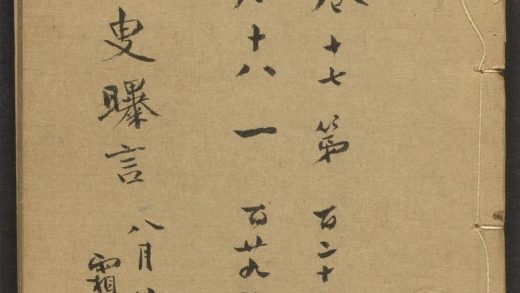 十七第百二十
十八一百廿九
叟曝言八月
霜